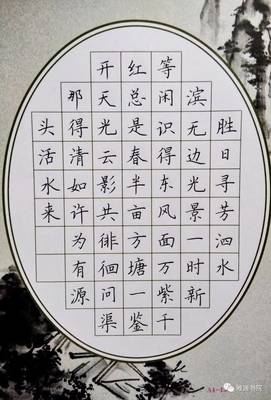 胜日寻芳泗水
滨无边光景一时新
等闲识得东风面万紫千
红总是春半亩方塘一鉴
开天光云影共徘徊问渠
那得清如许为有源
头活水来